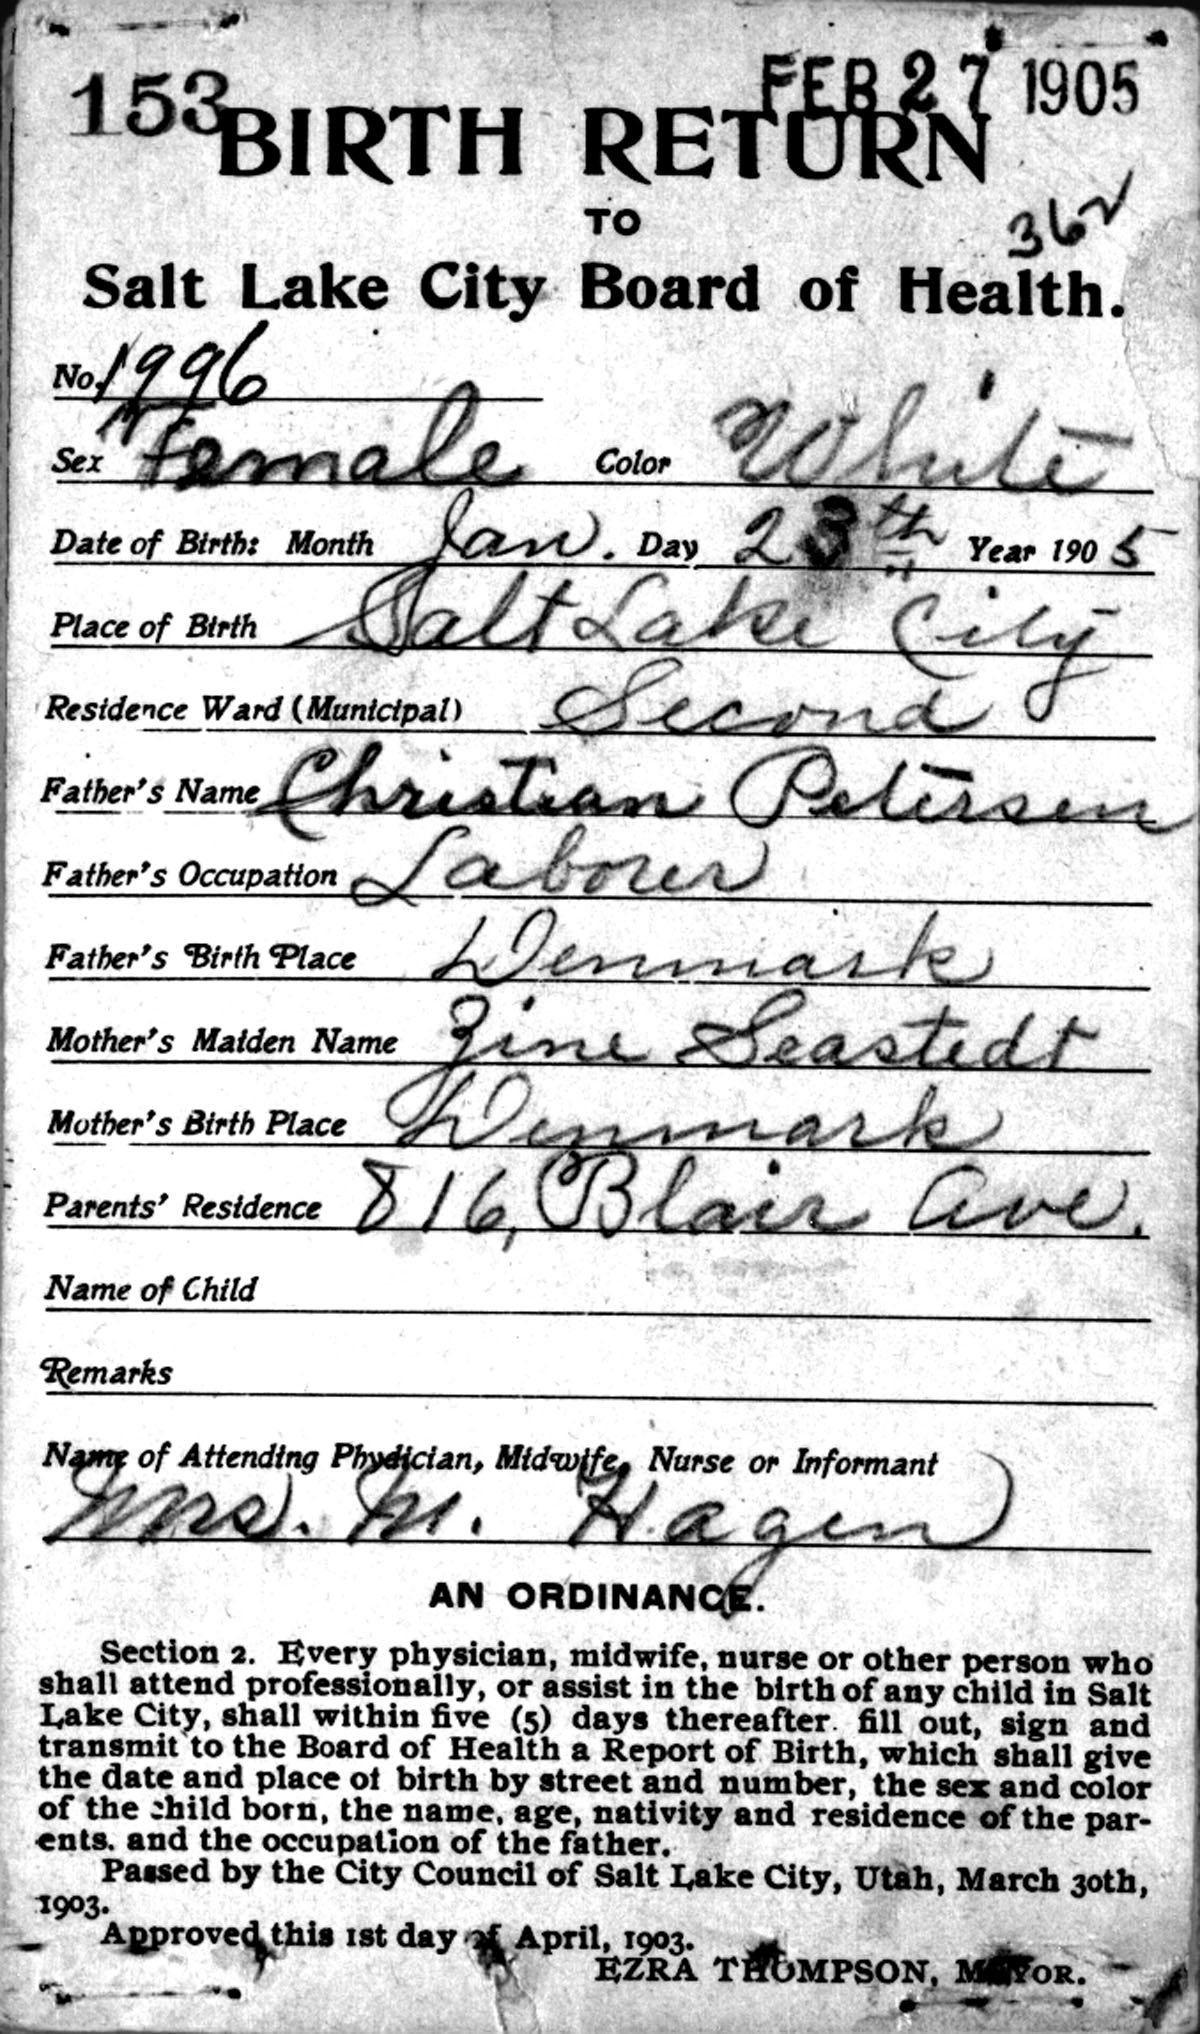 153 FEB 27 1905
BIRTH RETURN
TO
362
Salt Lake City Board of Health.
No. 1996
Sex Female Color White
Date of Birth: Month Jan. Day 23th Year 1905
Place of Birth Salt Lake City
Residence Ward (Municipal) Second
Father's Name Christian Petersen
Father's Occupation Laborer
Father's Birth Place Denmark
Mother's Maiden Name Zine Seastedt
Mother's Birth Place Denmark
Parents' Residence 816, Blair Ave.
Name of Child
Remarks
Name of Attending Phydician, Midwife, Nurse or Informant
Mrs. M. Hagen
AN ORDINANCE.
Section 2. Every physician, midwife, nurse or other person who
shall attend professionally, or assist in the birth of any child in Salt
Lake City, shall within five (5) days thereafter. fill out, sign and
transmit to the Board of Health a Report of Birth, which shall give
the date and place of birth by street and number, the sex and color
of the child born, the name, age, nativity and residence of the par-
ents. and the occupation of the father.
Passed by the City Council of Salt Lake City, Utah, March 30th,
1903.
Approved this 1st day of April, 1903.
EZRA THOMPSON, MAYOR.